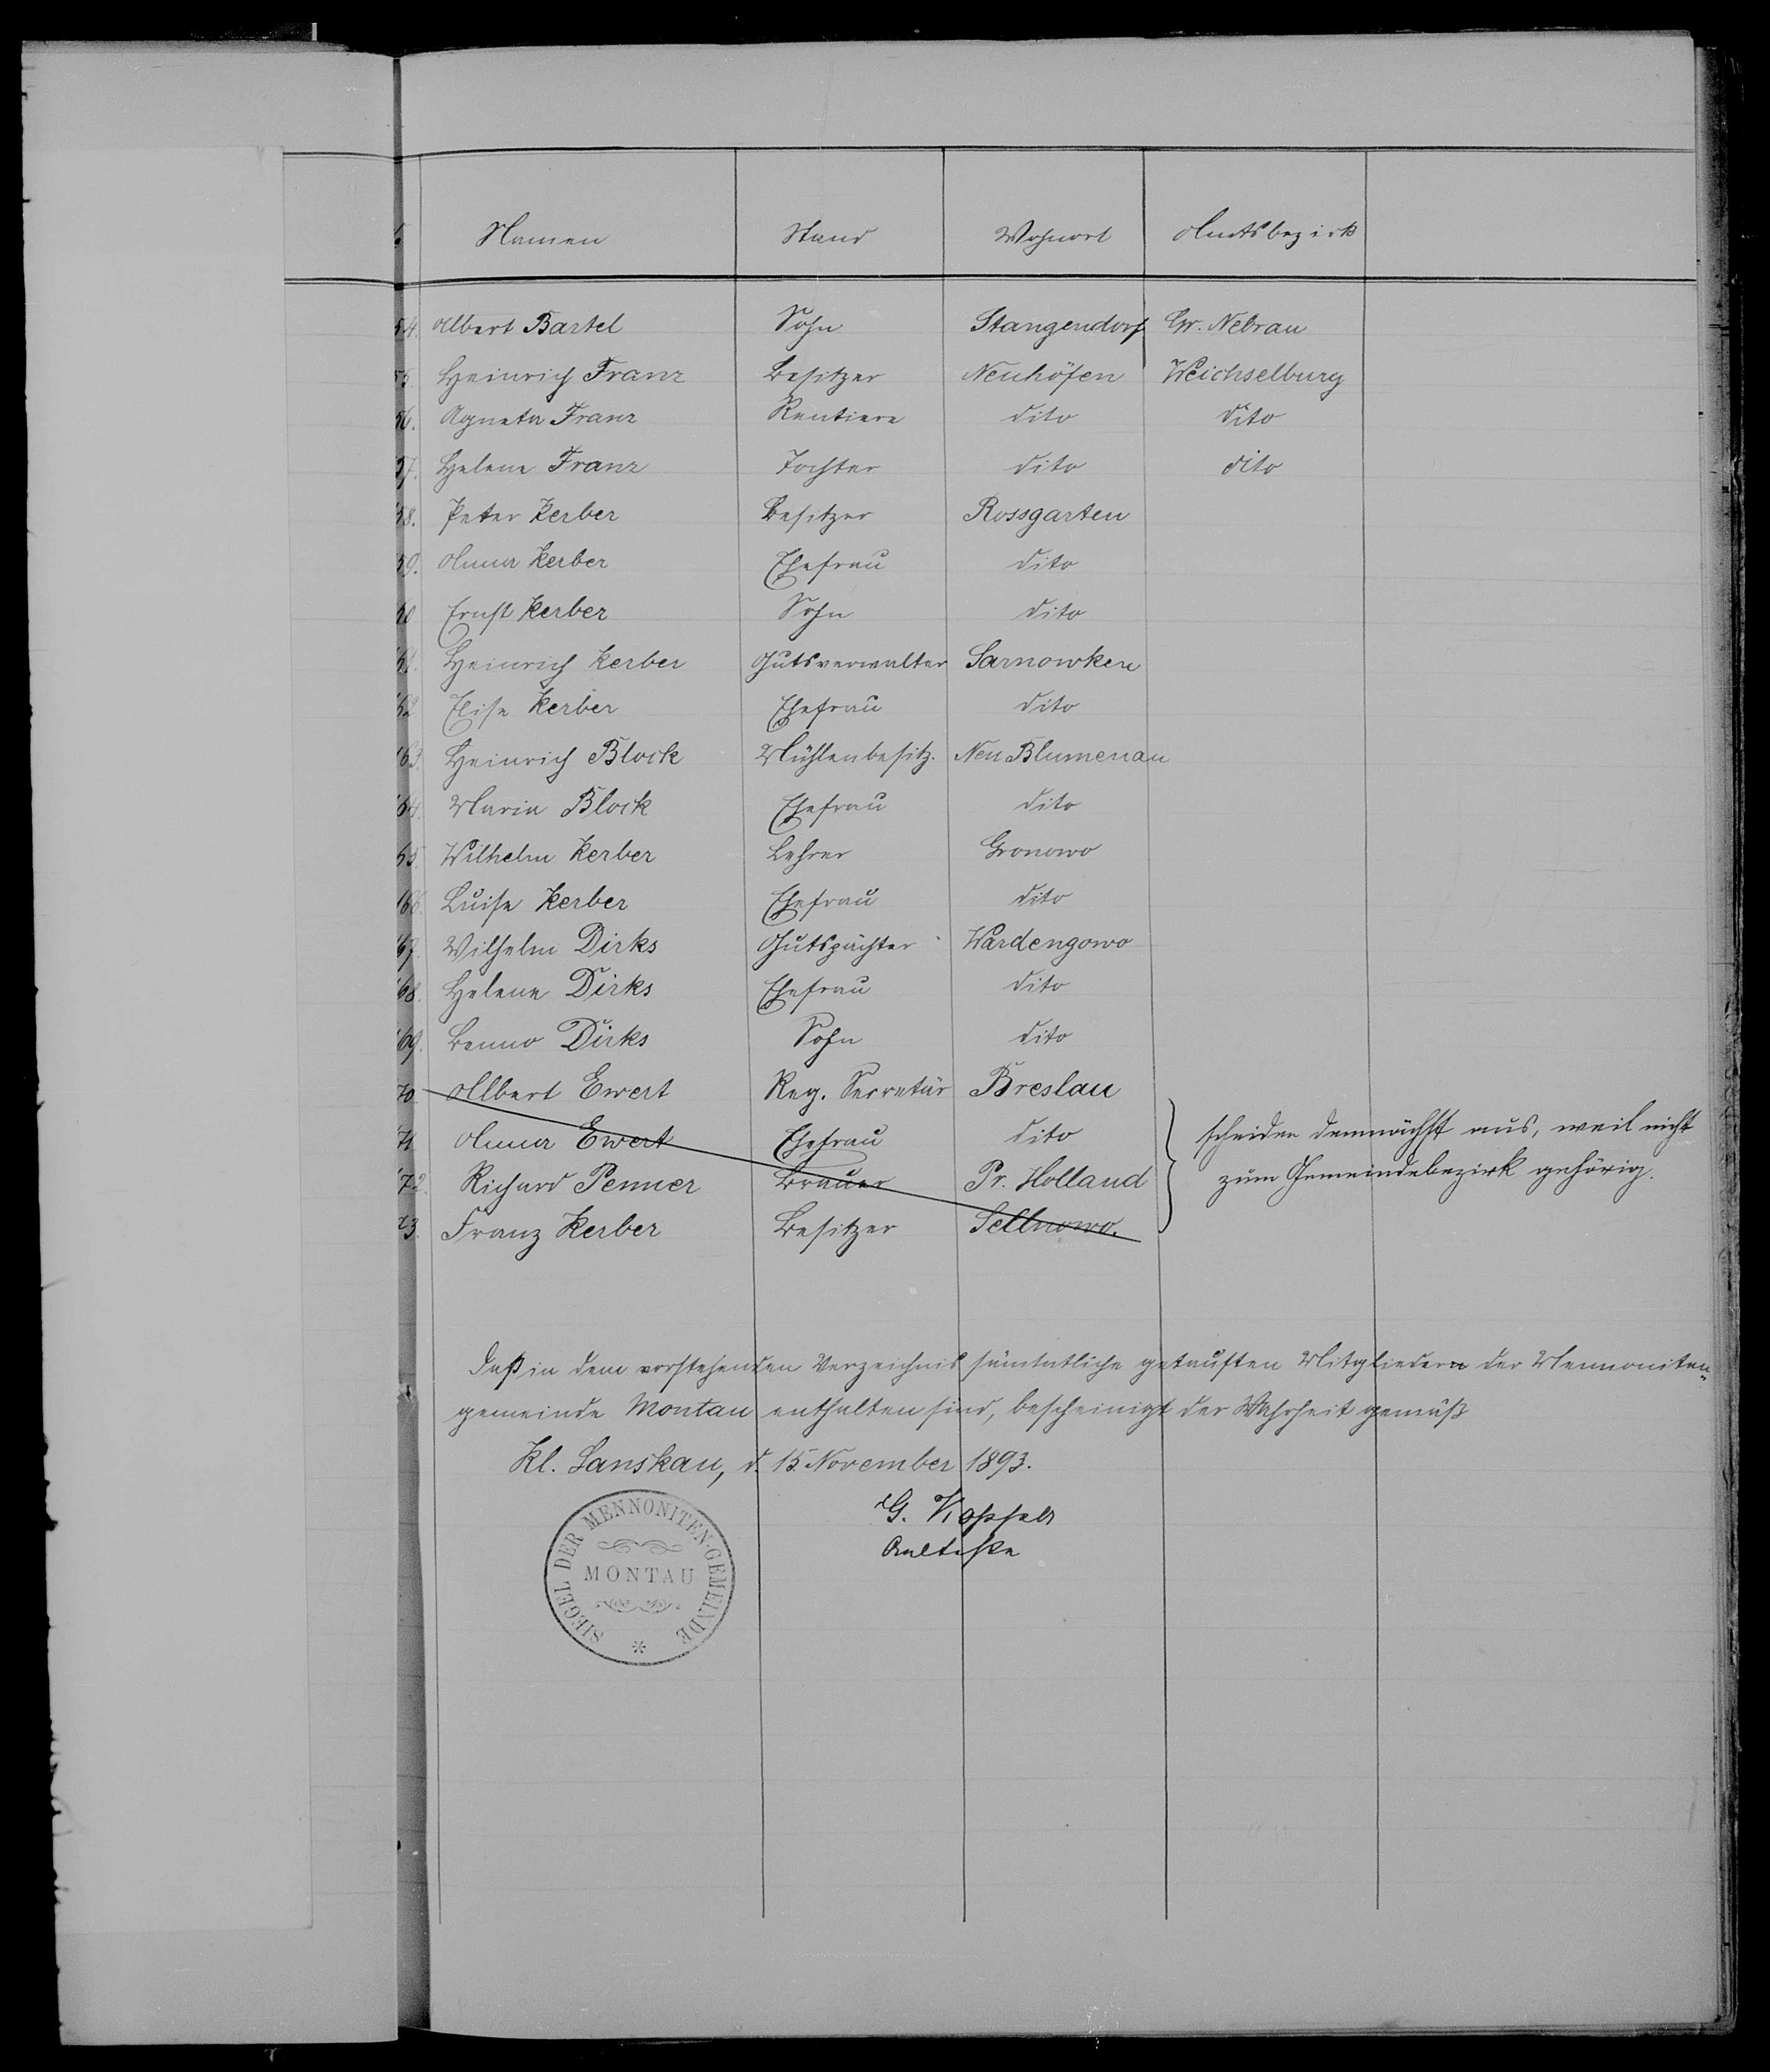 Namen Stand Wohnort Amtsbezirk
54. Albert Bartel Sohn Stangendorf Gr. Nebrau
55. Heinrich Franz Besitzer Neuhöfen Weichselburg
56. Agneta Franz Rentiere dito dito
57. Helene Franz Tochter dito dito
58. Peter Kerber Besitzer Rossgarten
59. Anna Kerber Ehefrau dito
60 Ernst Kerber Sohn dito
61. Heinrich Kerber Gutsverwalter Sarnowken
62 Elise Kerber Ehefrau dito
63. Heinrich Block Mühlenbesitz. Neu Blumenau
64. Maria Block Ehefrau dito
65. Wilhelm Kerber Lehrer Gronowo
66. Luise Kerber Ehefrau dito
67. Wilhelm Dirks Gutspächter Wardengowo
68. Helene Dirks Ehefrau dito
69. Benno Dirks Sohn dito
70 Albert Ewert Reg. Secretär Breslau
71 Anna Ewert Ehefrau dito
72. Richard Penner Brauer Pr. Holland
73. Franz Kerber Besitzer Sellnowo.
scheiden demnächst aus, weil nicht
zum Gemeindebezirk gehörig.
Daß in dem vorstehenden Verzeichnis sämtliche getauften Mitgliedern der Mennoniten-
gemeinde Montau enthalten sind, bescheinigt der Wahrheit gemäß
Kl. Sanskau, d. 15. November 1893.
G.
Aelteste
SIEGEL DER MENNONITEN-GEMEINDE
MONTAU